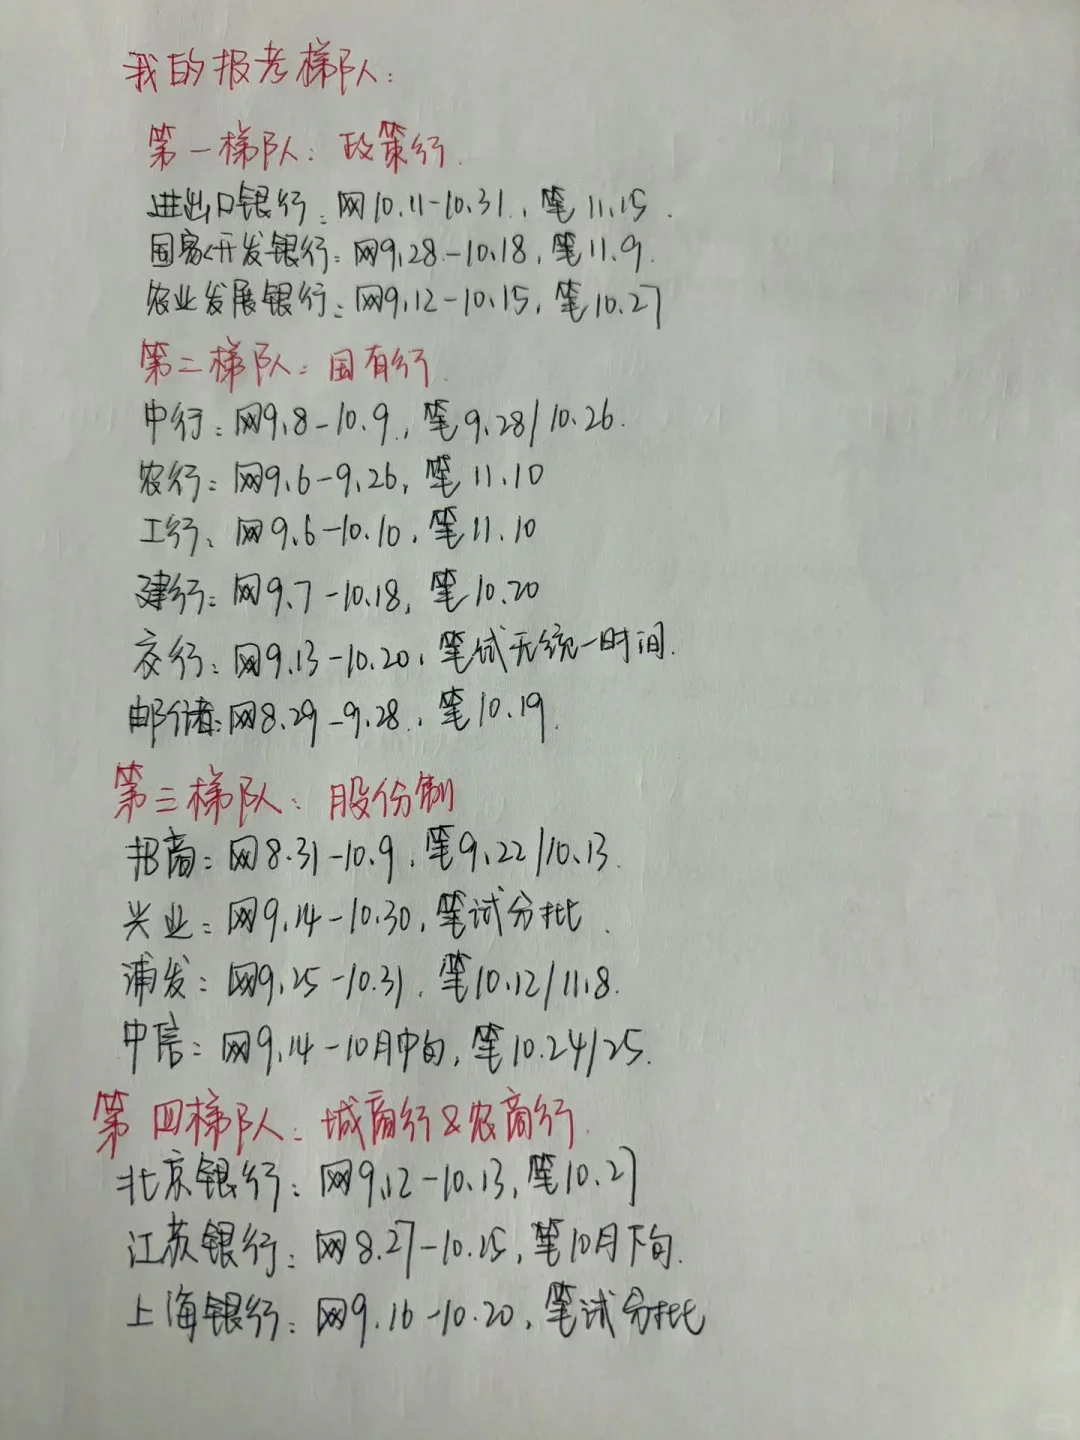 我的报考梯队:
第一梯队: 政策行.
进出口银行: 网10.11-10.31, 笔11.15.
国家开发银行: 网9.28-10.18, 笔11.9.
农业发展银行: 网9.12-10.15, 笔10.27
第二梯队: 国有行.
中行: 网9.8-10.9, 笔9.28/10.26.
农行: 网9.6-9.26, 笔11.10
工行: 网9.6-10.10, 笔11.10
建行: 网9.7-10.18, 笔10.20
交行: 网9.13-10.20, 笔试无统一时间.
邮储: 网8.29-9.28, 笔10.19.
第三梯队: 股份制
招商: 网8.31-10.9, 笔9.22/10.13.
兴业: 网9.14-10.30, 笔试分批.
浦发: 网9.25-10.31, 笔10.12/11.8.
中信: 网9.14-10月中旬, 笔10.24/25.
第四梯队: 城商行&农商行.
北京银行: 网9.12-10.13, 笔10.27
江苏银行: 网8.27-10.25, 笔10月下旬.
上海银行: 网9.16-10.20, 笔试分批